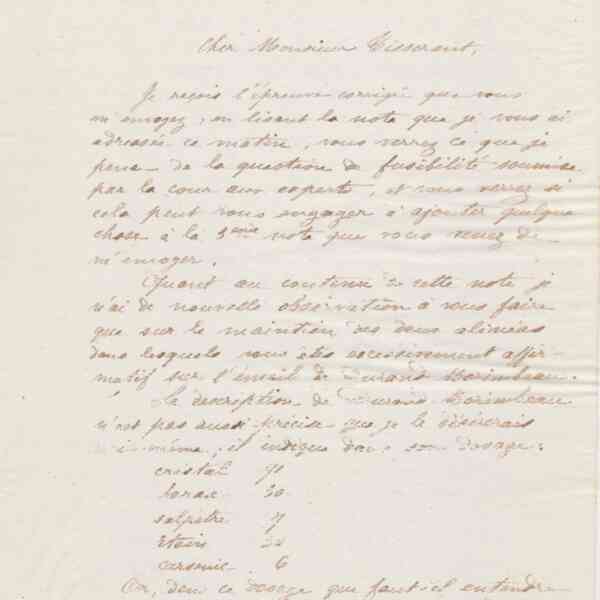 Cher Monsieur Tisserant,
Je reçois l'épreuve corrigée que vous
m'envoyez, en lisant la note que je vous ai
adressée ce matin, vous verrez ce que je
pense de la question de fusibilité soumise
par la cour aux experts, et vous verrez si
cela peut vous engager à ajouter quelque
chose à la 3ème note que vous venez de
m'envoyer.
Quant au contenu de cette note je
n'ai de nouvelle observation à vous faire
que sur le maintien des deux alinéas
dans lesquels vous êtes excessivement affir-
matif sur l'émail de Durand Borimbeau.
La description de Durand Borimbeau
n'est pas aussi précise que je le désirerais
moi même, il indique dans son dosage:
cristal
borax 30
salpêtre 7
étain
arsenic 6
Or, dans ce dosage que faut-il entendre